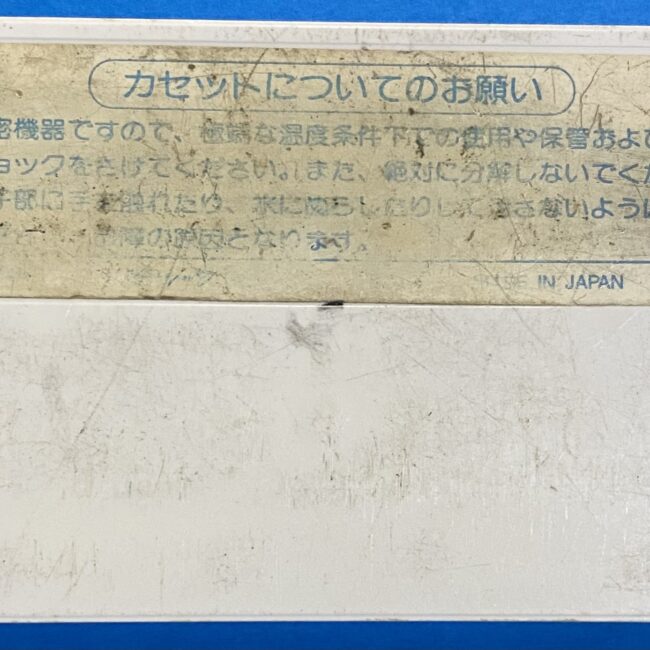 カセットについてのお願い
密機器ですので、極端な湿度条件下での使用や保管およひ
ョックをさけてください。また、絶対に分解しないでくだ
子部に手を触れたり、水にぬらしたりしてさないように
障の原因となります。
IN JAPAN